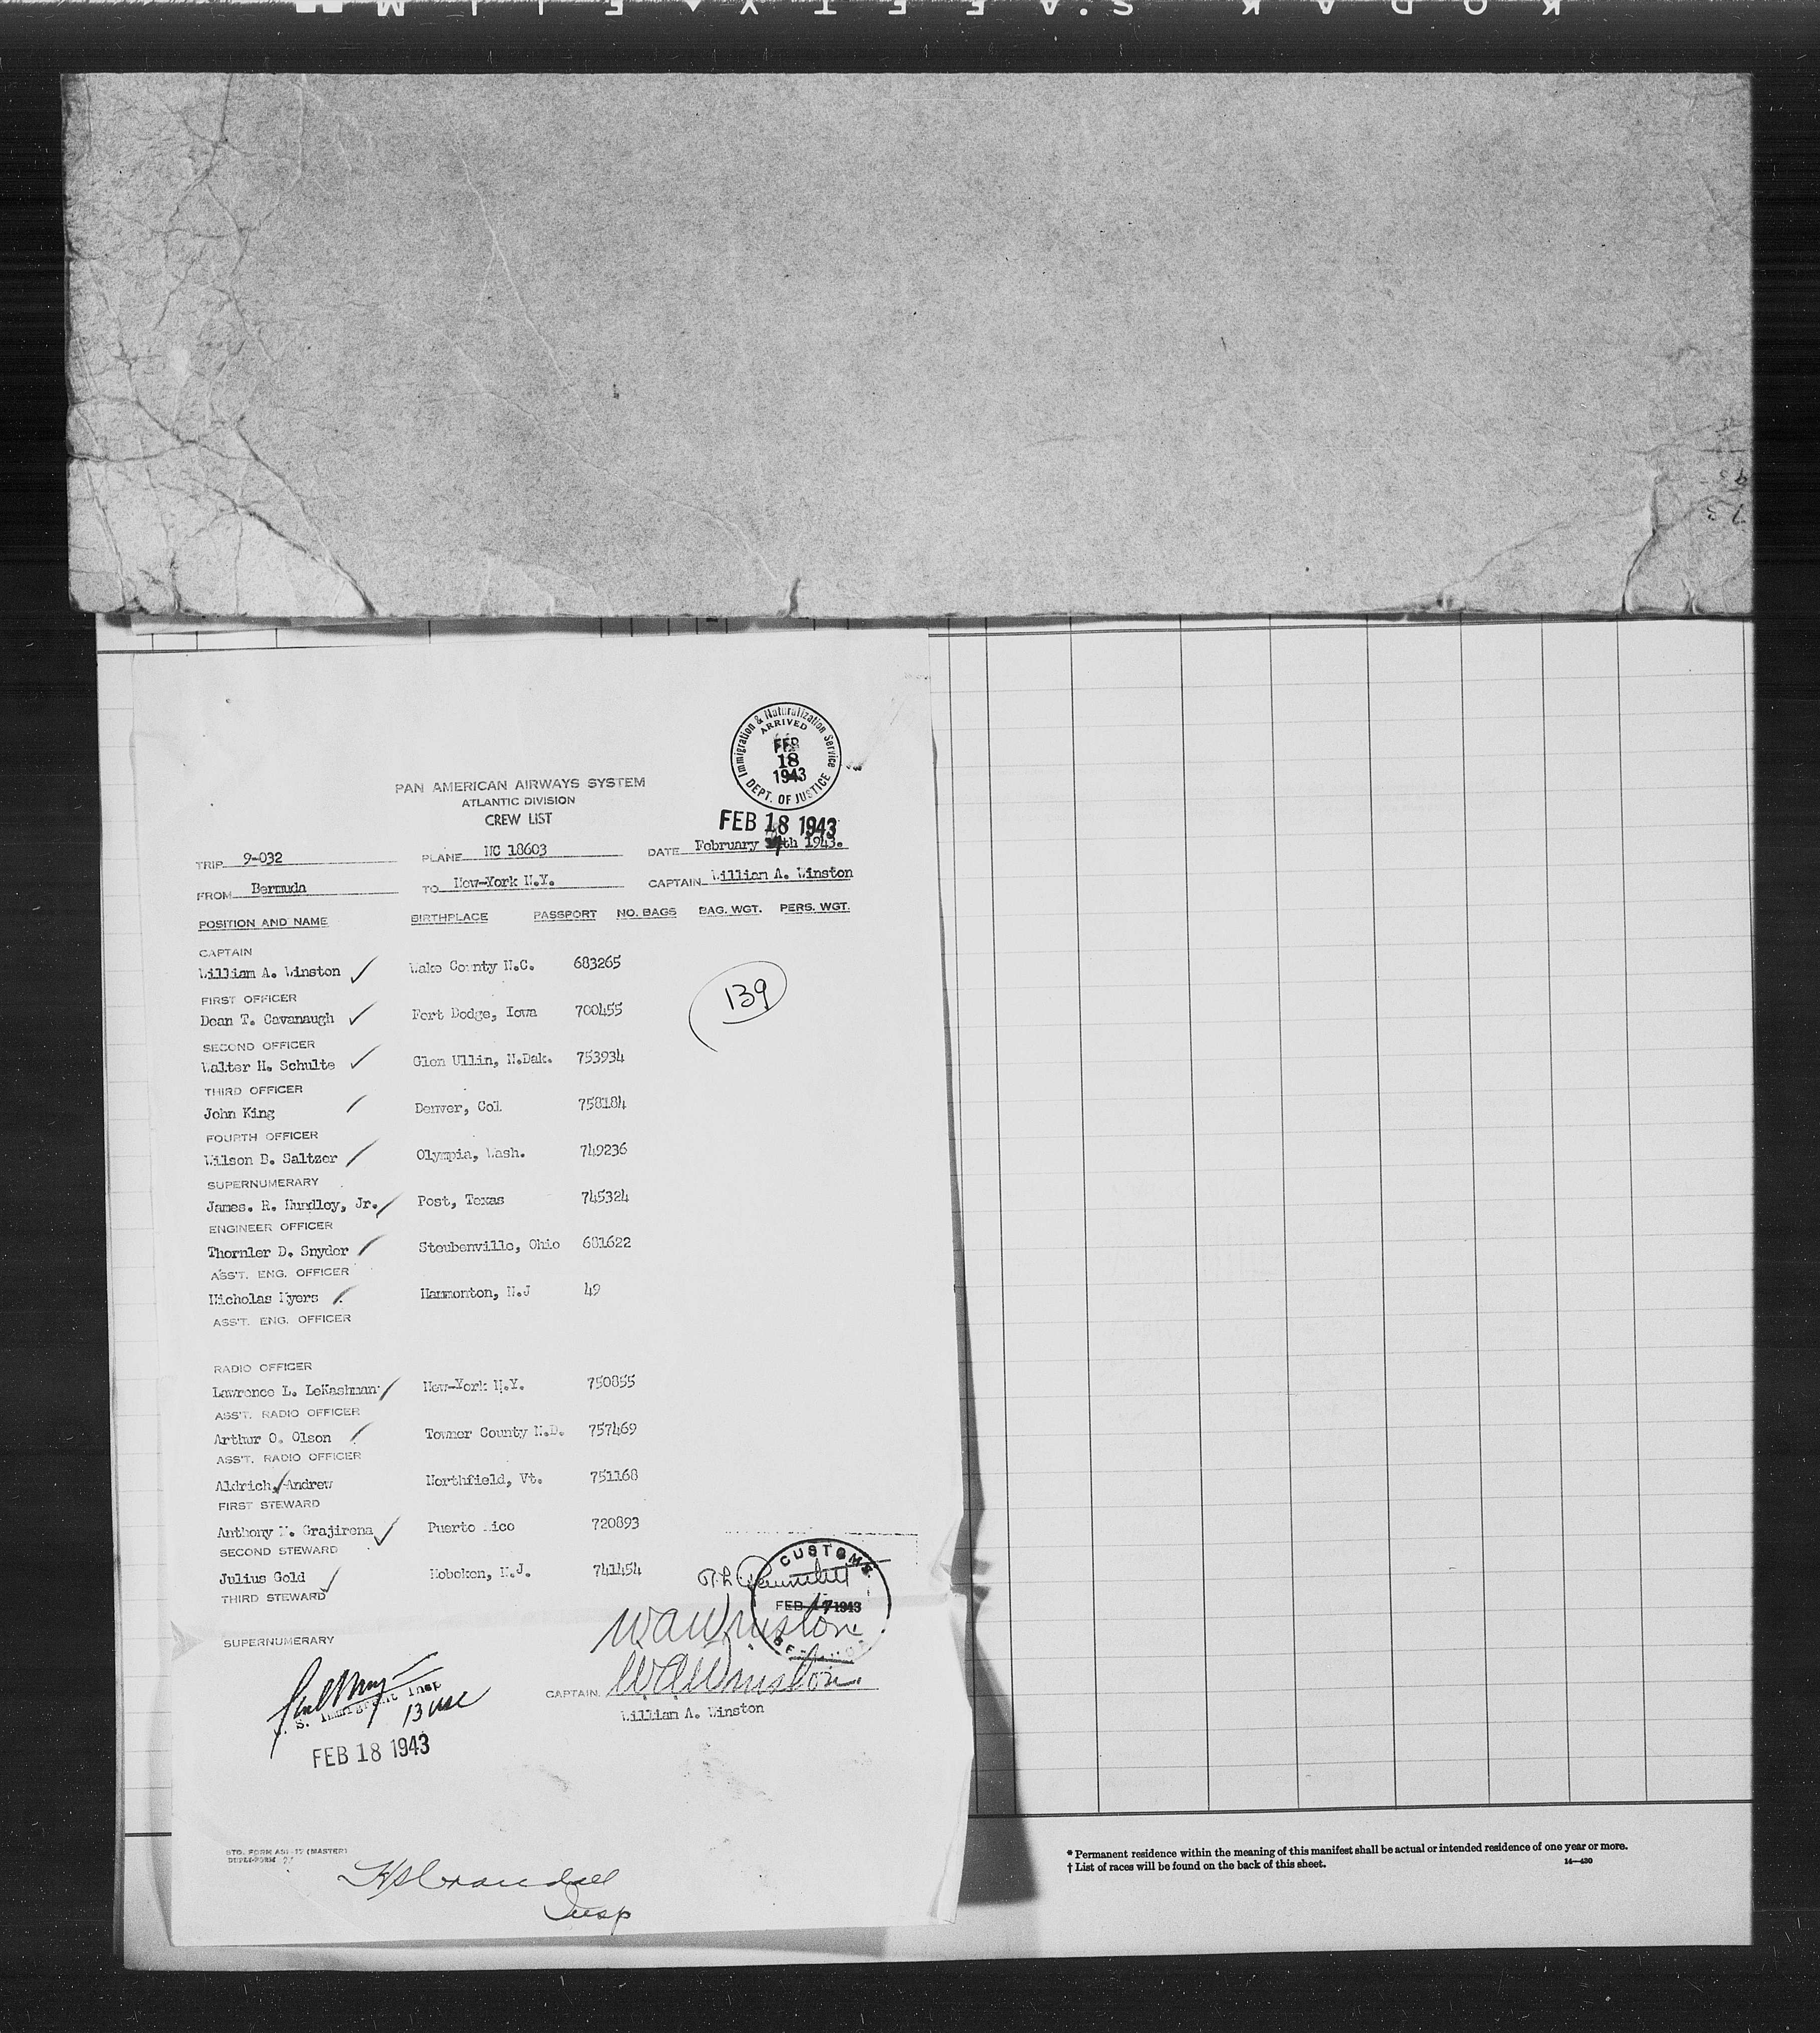 KODAK S.AFETY FILM
Immigration & Naturalization Service
ARRIVED
FEB
18
1943
DEPT. OF JUSTICE
PAN AMERICAN AIRWAYS SYSTEM
ATLANTIC DIVISION
CREW LIST
FEB 18 1943
TRIP 9-032 PLANE NC 18603 DATE February th 1943.
FROM Bermuda TO New-York N.Y. CAPTAIN William A. Winston
POSITION AND NAME BIRTHPLACE PASSPORT NO. BAGS BAG. WGT. PERS. WGT.
CAPTAIN
William A. Winston ✓ Wake County N.C. 683265
139
FIRST OFFICER
Dean T. Cavanaugh ✓ Fort Dodge, Iowa 700455
SECOND OFFICER
Walter H. Schulte ✓ Glen Ullin, N.Dak. 753934
THIRD OFFICER
John King Denver, Col. 758184
FOURTH OFFICER
Wilson D. Saltzer Olympia, Wash. 749236
SUPERNUMERARY
James. R. Hundley, Jr. Post, Texas 745324
ENGINEER OFFICER
Thornler D. Snyder Steubenville, Ohio 681622
ASS'T. ENG. OFFICER
Nicholas Myers Hammonton, N.J 49
ASS'T. ENG. OFFICER
RADIO OFFICER
Lawrence L. LeKashman New-York N.Y. 750855
ASS'T. RADIO OFFICER
Arthur O. Olson Towner County N.D. 757469
ASS'T. RADIO OFFICER
Aldrich, Andrew Northfield, Vt. 751168
FIRST STEWARD
Anthony M. Grajirena ✓ Puerto ico 720893
SECOND STEWARD
Julius Gold ✓ Hoboken, N.J. 741454
THIRD STEWARD
CUSTOMS
FEB 17 1943
WAWinston
SUPERNUMERARY
CAPTAIN. WAWinston.
William A. Winston
U. S. Immigrant Insp
13 USC
FEB 18 1943
STO. FORM ASI-17 (MASTER)
DUPLI-FORM
HSCrandall
Insp
* Permanent residence within the meaning of this manifest shall be actual or intended residence of one year or more.
† List of races will be found on the back of this sheet.
14—430